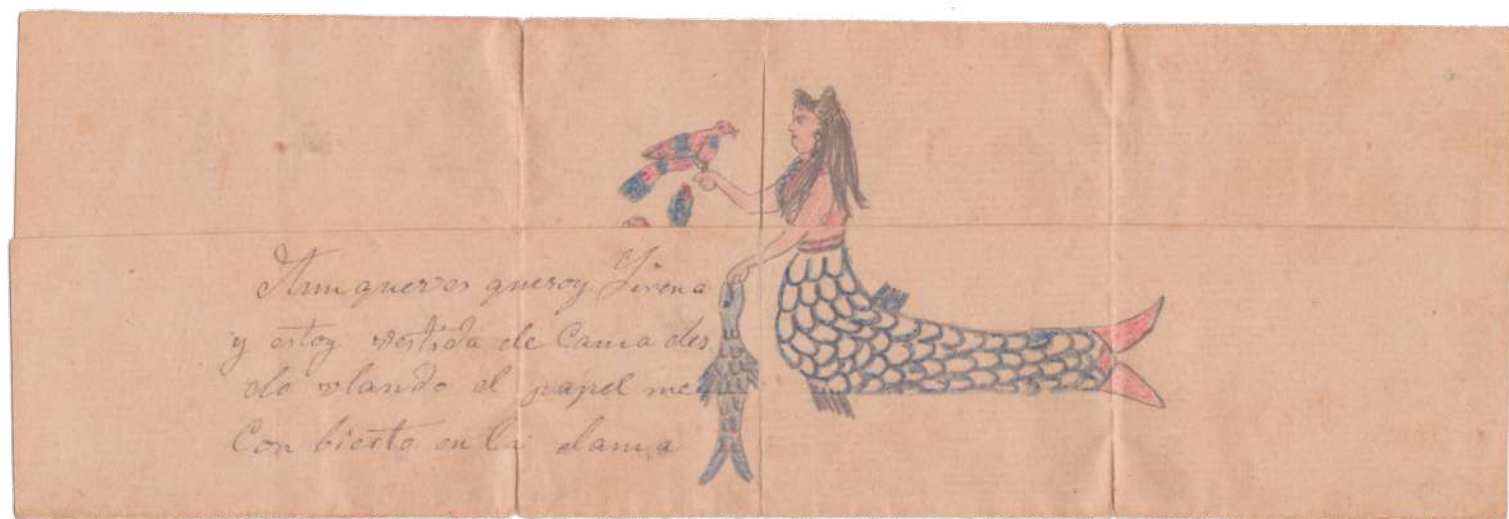 Aunqueves quesoy Sirena
y estoy vestida de Cama des
do vlando el papel me
Con bierto en la dama